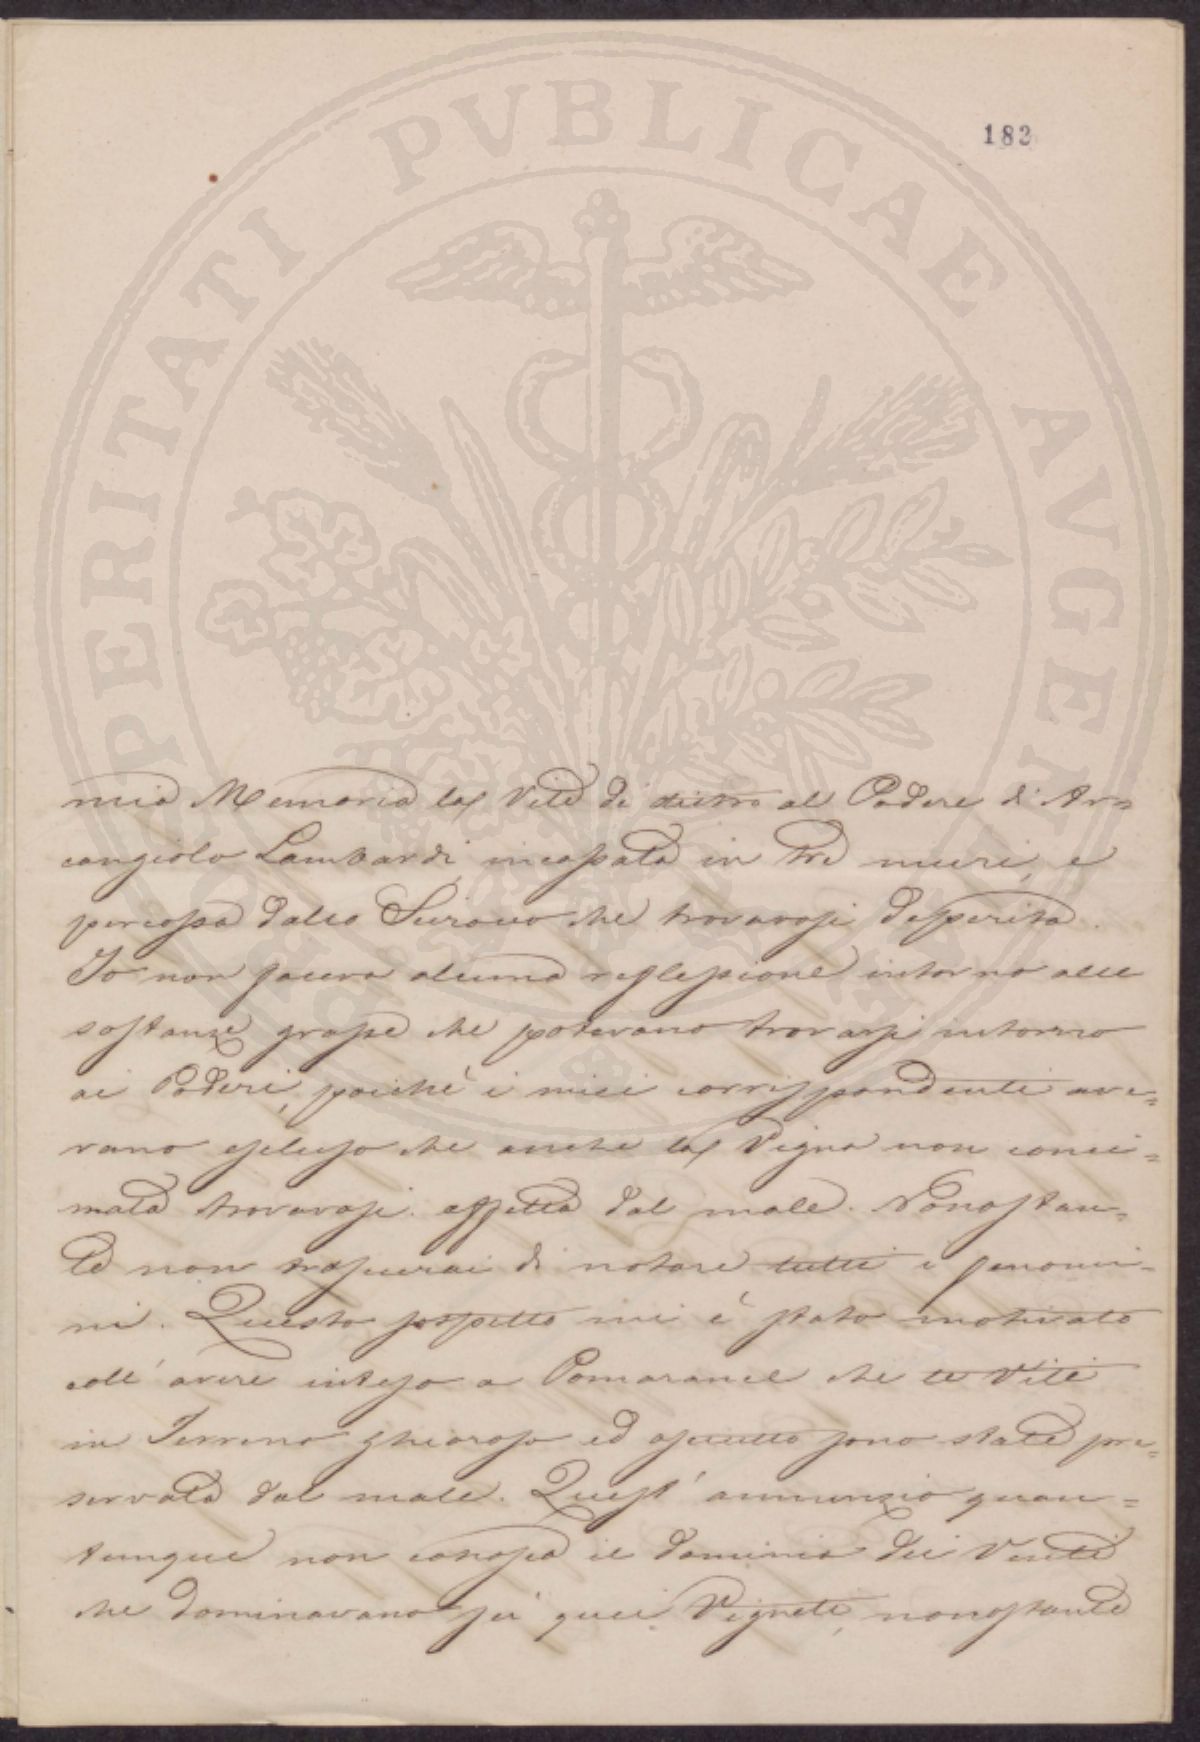 PROSPERITATI PVBLICAE AVGENDAE
182
mia Memoria la Vite di dietro al Podere d'Ar=
cangiolo Lambardi, incassata in tre muri, e
percossa dallo Scirocco che trovavasi desperita.
Io non faceva alcuna reflessione intorno alle
sostanze grasse che potevano trovarsi intorno
ai Poderi, poichè i miei corrispondenti ave=
vano escluso che anche la Vigna non conci=
mata trovavasi affetta dal male. Nonostan=
te non trascurai di notare tutti i fenome=
ni. Questo sospetto mi è stato motivato
coll'avere inteso a Pomarance che le Viti
in Terreno ghiaroso ed asciutto sono state pre=
servate dal male. Quest'annunzio quan=
tunque non conosca il dominio dei Venti
che dominavano su quei Vigneti, nonostante